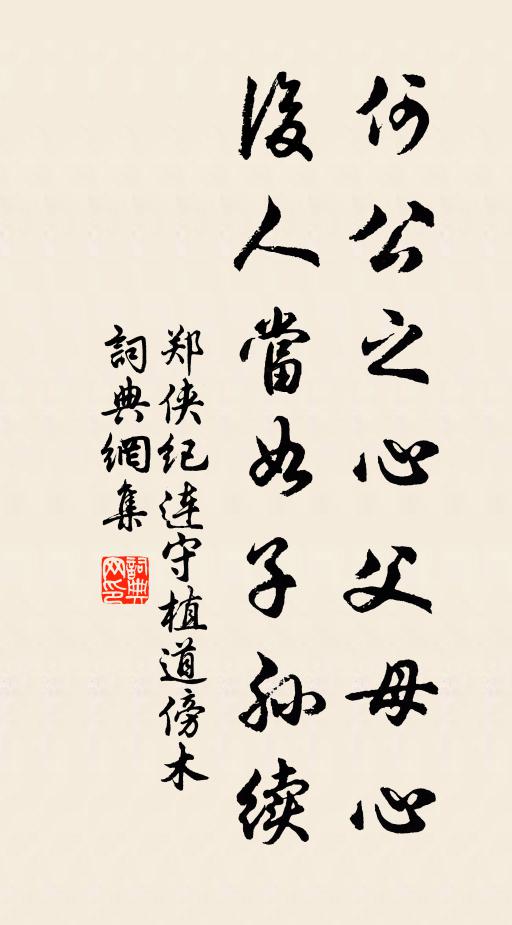 何公之心父母心
後人當如子孫续
郑侠纪连守植道傍木
詞典網集
詞典网印